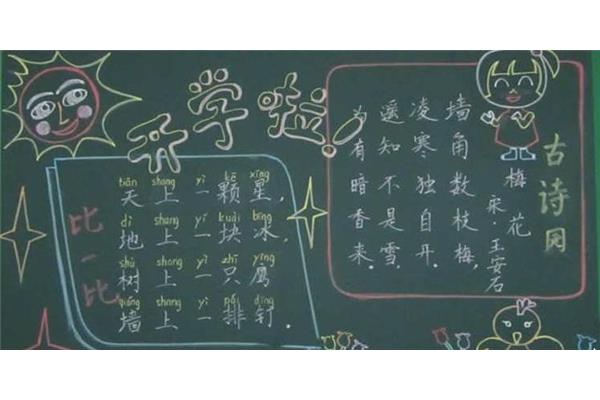 开学啦!
比一比
tiān shang yì kē xīng
天上一颗星,
dì shang yì kuài bīng
地上一块冰,
shù shang yì zhī yīng
树上一只鹰
qiáng shang yì pái dīng
墙上一排钉.
古诗园
梅花
宋·王安石
墙角数枝梅,
凌寒独自开.
遥知不是雪,
为有暗香来.